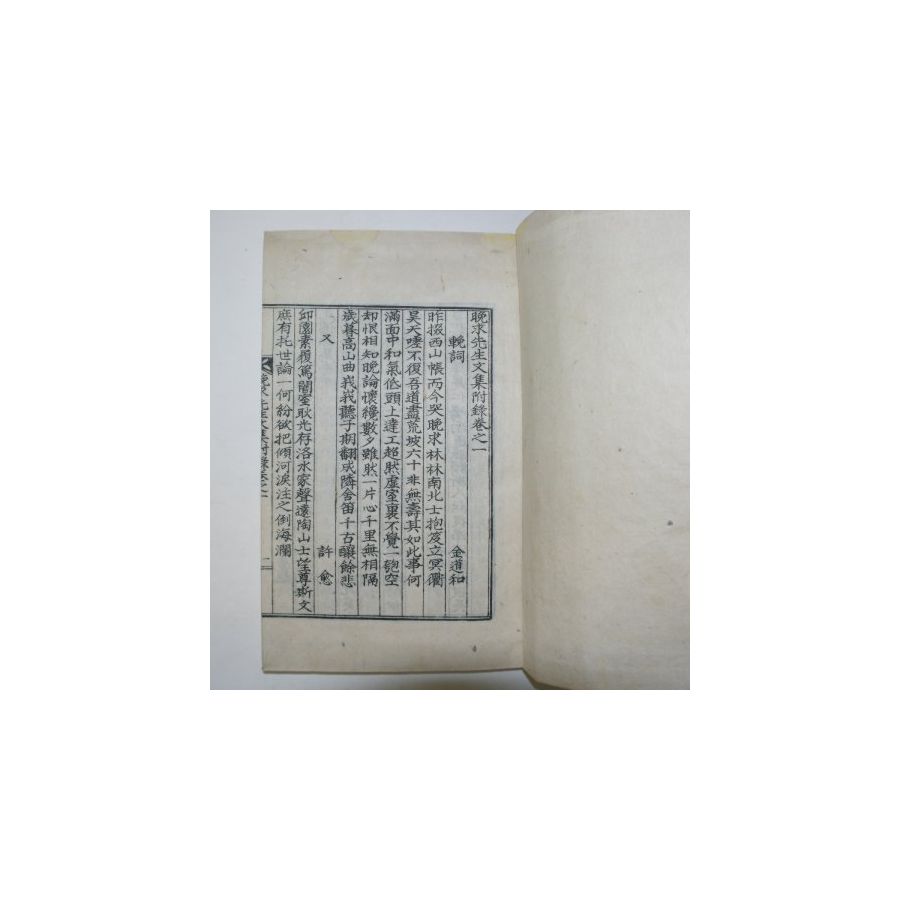 晩求先生文集附錄卷之一
輓詞 金道和
昨掇西山帳而今哭晩求林林南北士抱笈立冥衢
昊天嗟不復吾道盡荒坡六十非無壽其如此事何
滿面中和氣低頭上達工超然虛室裏不覺一瓠空
却恨相知晩論懷纔數夕雖然一片心千里無相隔
歲暮高山曲峩峩聽子期翻成隣舍笛千古釀餘悲
又 許愈
邱園素履篤闇室耿光存洛水家聲遠陶山士望尊斯文
庶有托世論一何紛欲把傾河淚注之倒海瀾